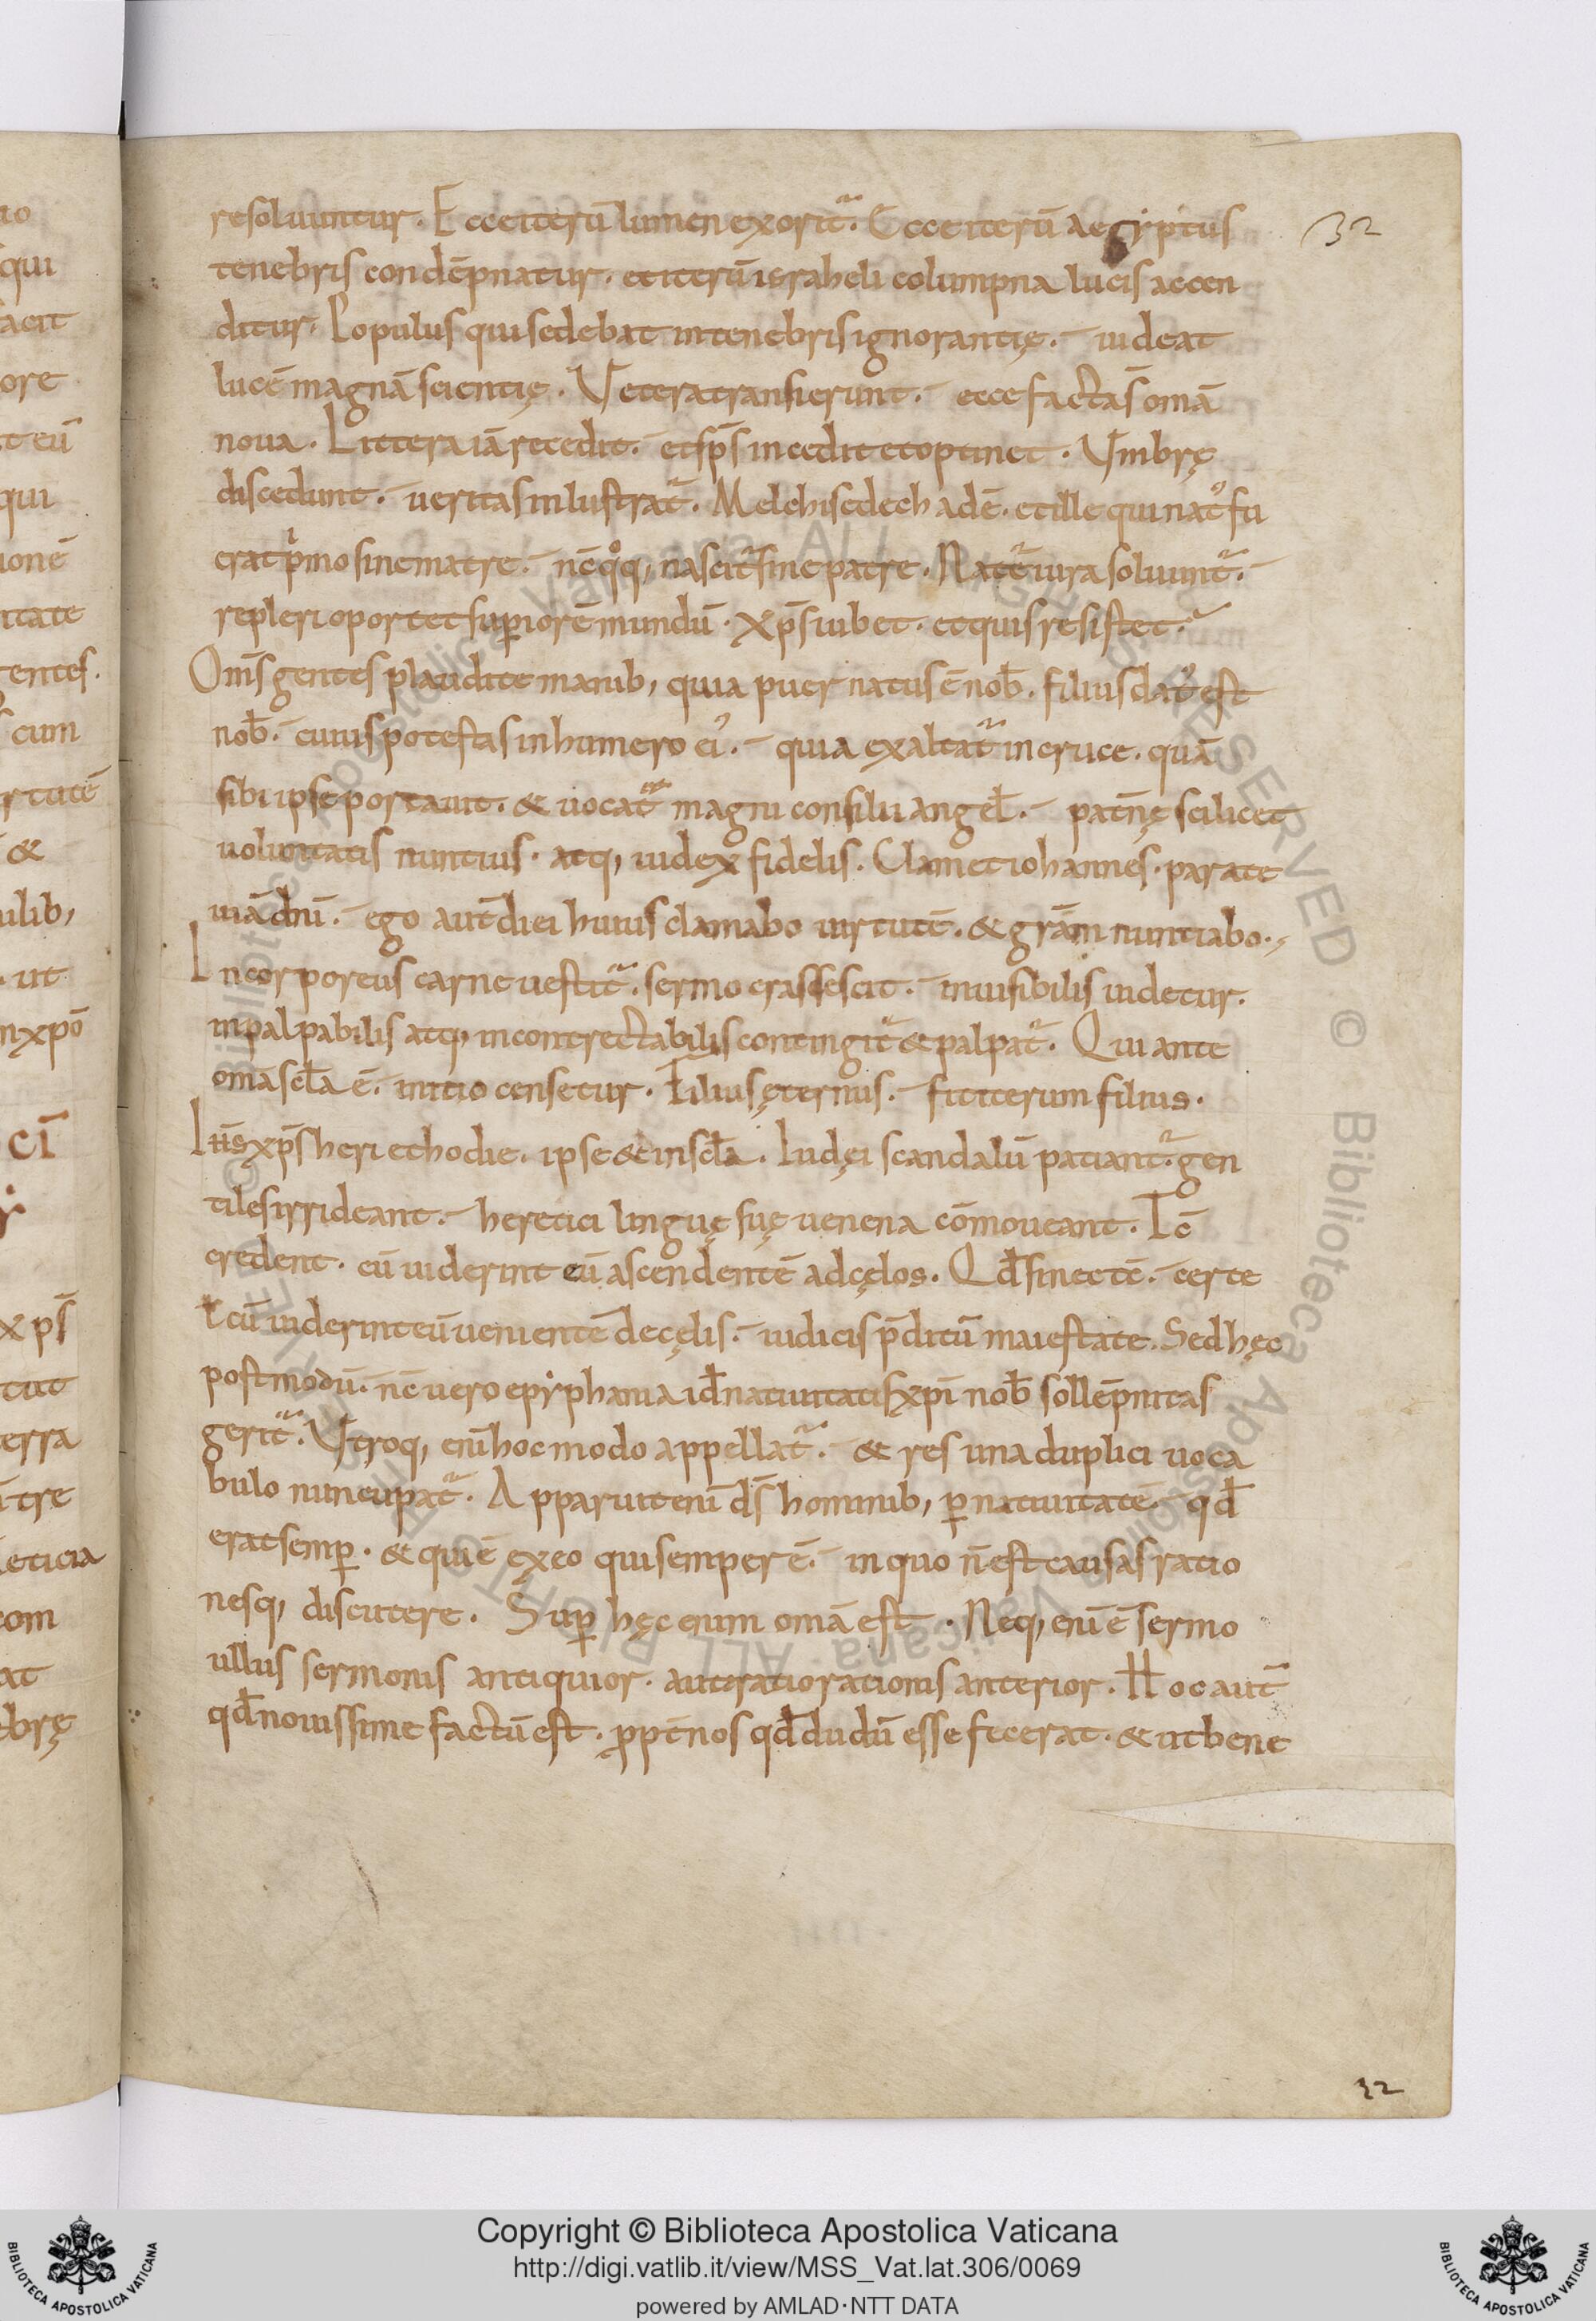 32
resoluuntur. Ecce iterū lumen exorit᷑. Ecce iterū aegyptus
tenebris condēpnatur. et iterū israheli columpna lucis accen
ditur. Populus qui sedebat in tenebris ignorantię. uideat
lucē magnā scientię. Vetera transierunt. ecce facta s̄ om̄a
noua. Littera iā recedit. et sp̄s incedit et optinet. Vmbrę
discedunt. ueritas inlustrat᷑. Melchisedech adē. et ille qui natꝰ fu
erat p̄mo sine matre. nc̄ qq̊, nascit᷑ sine patre. Natę᷑ iura soluunt᷑.
repleri oportet suꝑiorē mundū. xp̄s iubet. et quis resistet.
Om̄s gentes plaudite manib, quia puer natus ē nob̄. filius datꝰ est
nob̄. cuius potestas in humero eiꝰ. quia exaltat᷑ in cruce. quā
sibi ipse portauit. & uocat᷑ magni consilii angel̄. pat̄nę scilicet
uoluntatis nuntius. atq, iudex fidelis. Clamet iohannes. parate
uiā dn̄i. ego aut̄ diei huius clamabo uirtutē. & gr̄am nuntiabo.
Incorporeus carne uestit᷑. sermo crassescit. inuisibilis uidetur.
inpalpabilis atq, incontrectabilis contingit᷑ & palpat᷑. Qui ante
om̄a sc̄la ē. initio censetur. Filius ęternus. fit iterum filius.
Ih̄s xp̄s heri et hodie. ipse & in sc̄la. Iudęi scandalū patiant᷑. gen
tiles irrideant. heretici linguę suę uenena cōmoueant. Tc̄
credent. cū uiderint eū ascendentē ad cęlos. Qd̄ si nec tc̄. certe
t̄ cū uiderint eū uenientē de cęlis. iudicis p̄ditū maiestate. Sed hęc
postmodū. nc̄ uero epyphania id̄ natiuitatis xp̄i nob̄ sollēpnitas
gerit᷑. Vtroq, eni hoc modo appellat᷑. & res una duplici uoca
bulo nuncupat᷑. Apparuit eni ds̄ hominib, ꝑ natiuitatē. qd̄
erat semꝑ. & qui ē ex eo qui semper ē. in quo n̄ est causas ratio
nesq, discutere. Suꝑ hęc enim om̄a est. Neq, eni ē sermo
ullus sermonis antiquior. aut ratio rationis anterior. Hoc aut̄
qd̄ nouissime factū est. ꝓpt̄ nos qd̄ dudū esse fecerat. & ut bene
32
Copyright © Biblioteca Apostolica Vaticana
http://digi.vatlib.it/view/MSS_Vat.lat.306/0069
powered by AMLAD·NTT DATA